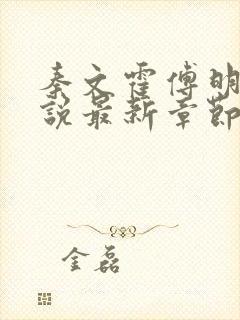 秦文霍傅明
说最新章节
金磊